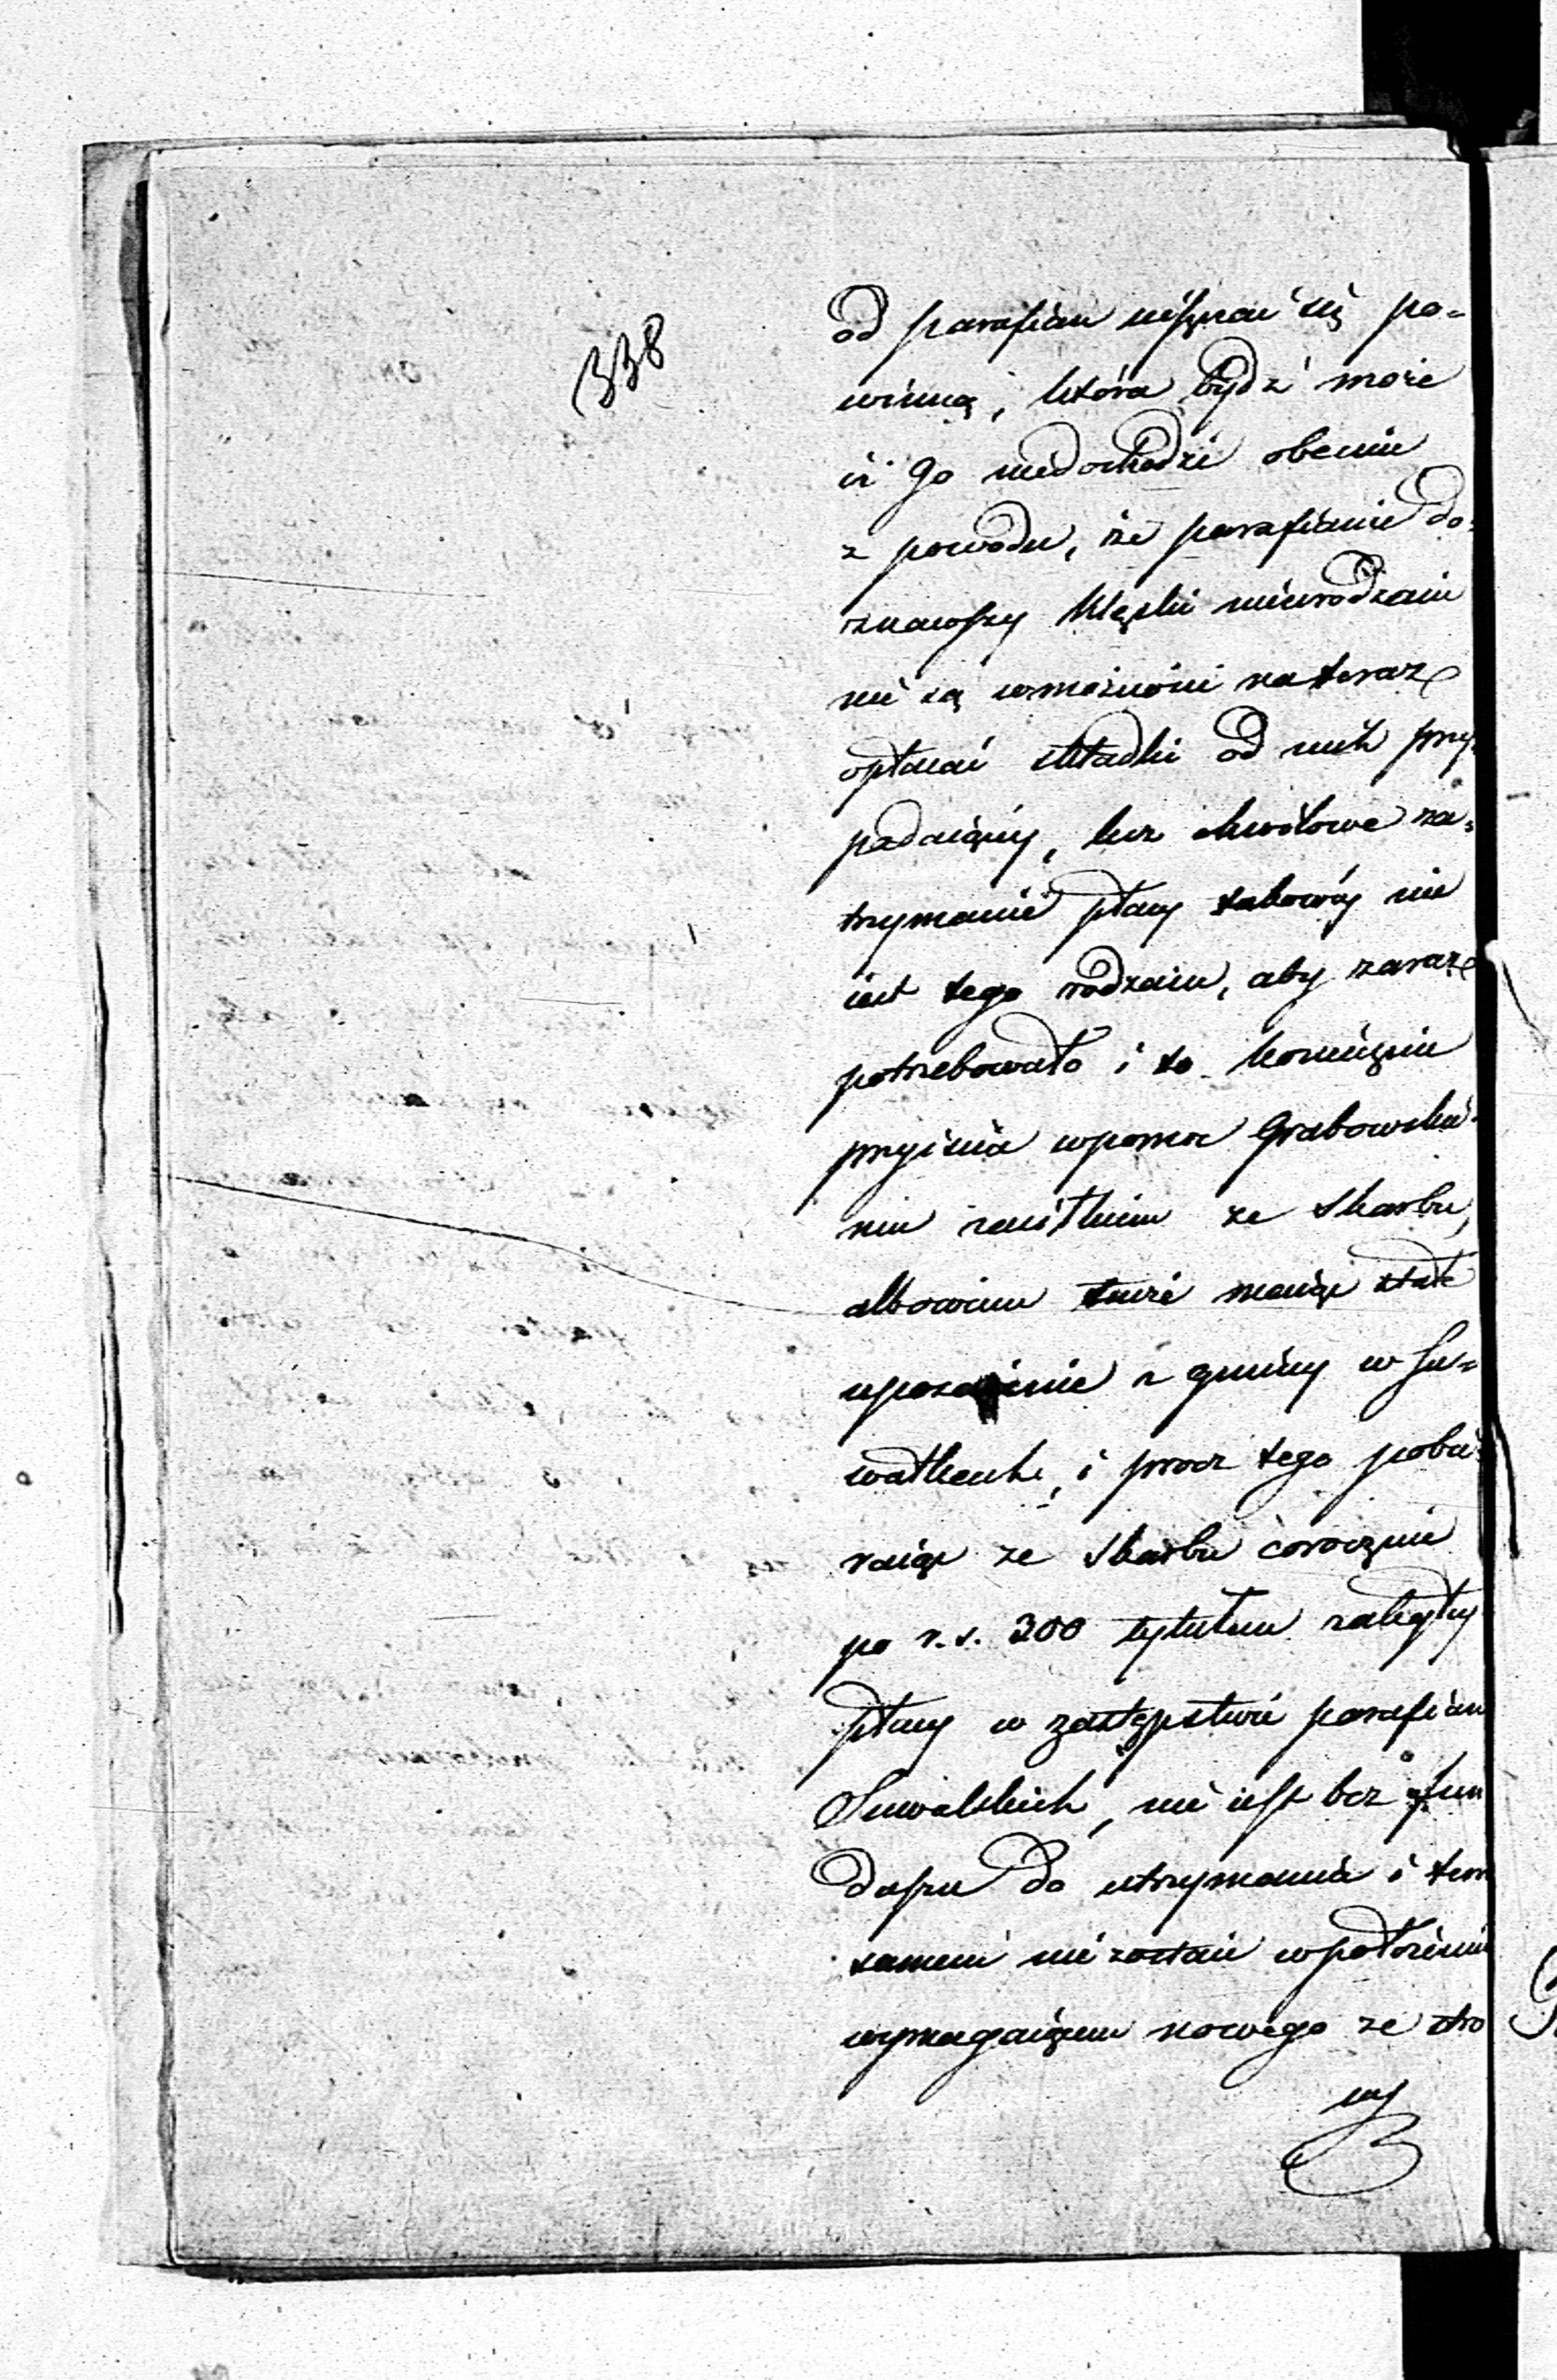 338
od parafian uiszczać się po=
winną, która bydź może
iż Go niedochodzi obecnie
z powodu, że parafianie do=
znawszy klęski nieurodzaiu
nie są wmożności na teraz
opłacać składki od nich przy=
padaiącéy, lecz chwilowe za=
trzymanie płacy takowéy nie
iest tego rodzaiu, aby zaraz
potrzebowało i to koniecznie
przyiścia wpomoc Grabowskie=
mu zasiłkiem ze Skarbu,
albowiem tenże maiąc stałe
uposażenie z gminy w Su=
wałkach, i procz tego pobie=
raiąc ze Skarbu corocznie
po r. s. 300 tytułem zaległéy
płacy w zastępstwie parafian
Suwalskich, nie iest bez fun
duszu do utrzymania i tem
samem nie zostaie wpołożeniu
wymagaiącem nowego ze stro
ny